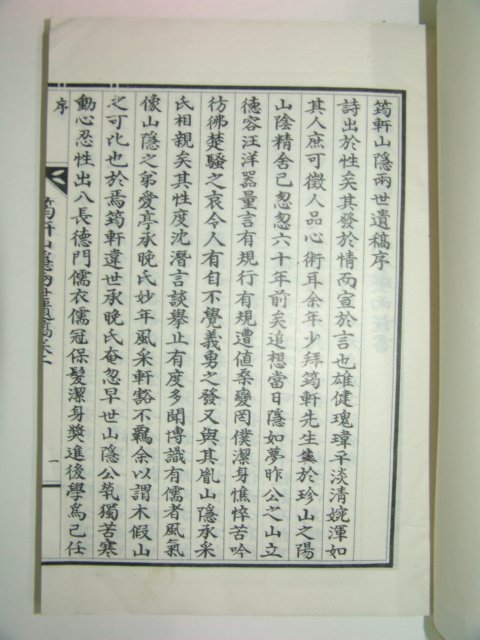 筠軒山隱兩世遺稿序
詩出於性矣其發於情而宣於言也雄健瑰瑋平淡清婉渾如
其人庶可徵人品心術耳余年少拜筠軒先生集於珍山之陽
山陰精舍已忽忽六十年前矣追想當日隱如夢昨公之山立
德容汪洋器量言有規行有規遭値桑變罔僕潔身憔悴苦吟
彷彿楚騷之哀令人有自不覺義勇之發又與其胤山隱承采
氏相親矣其性度沈潛言談擧止有度多聞博識有儒者風氣
像山隱之弟愛亭承晩氏妙年風采軒豁不羈余以謂木假山
之可比也於焉筠軒違世承晩氏奄忽早世山隱公煢獨苦寒
動心忍性出入長德門儒衣儒冠保髮潔身奬進後學爲己任
序
筠軒山隱兩世遺稿卷一
一